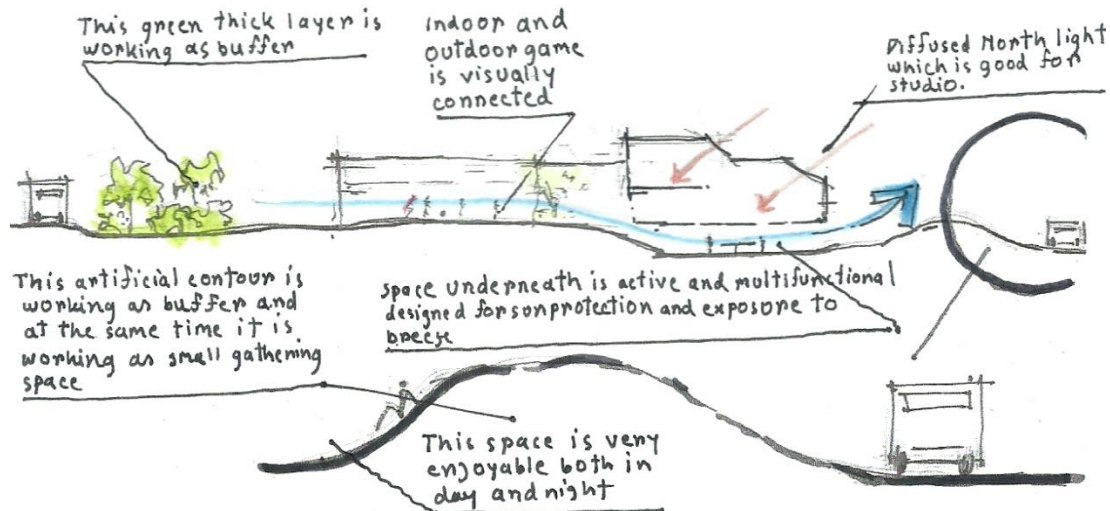 This green thick layer is
working as buffer
indoor and
outdoor game
is visually
connected
Diffused North light
which is good for
studio.
This artificial contour is
working as buffer and
at the same time it is
working as small gathering
space
space underneath is active and multifunctional
designed for sonprotection and exposore to
breeze
This space is very
enjoyable both in
day and night